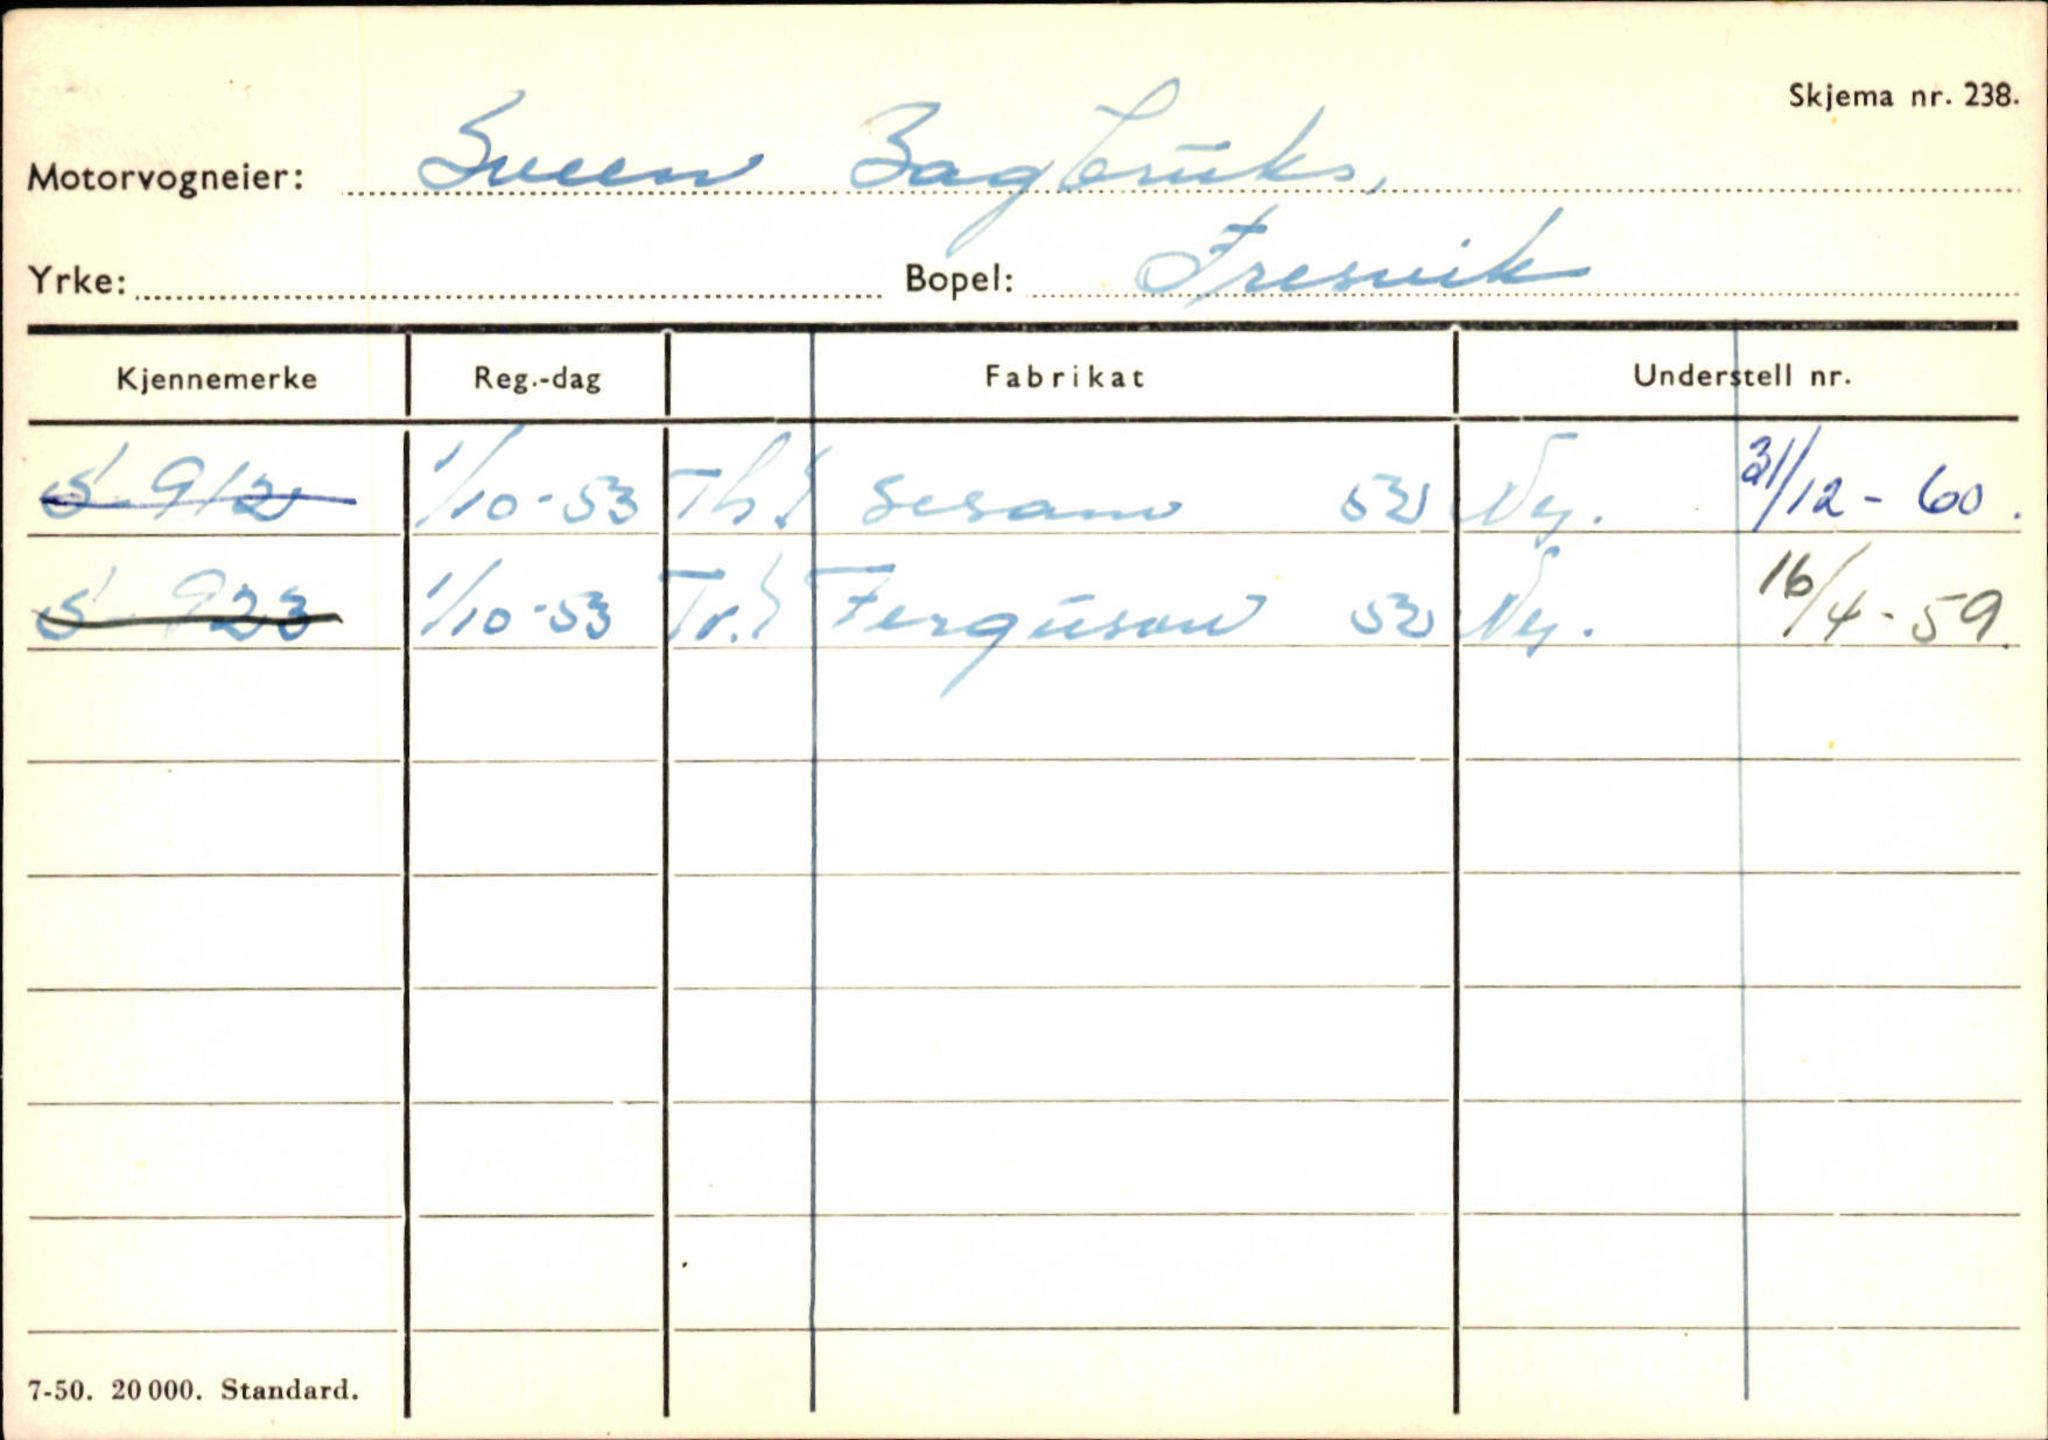 Skjema nr. 238.
Motorvogneier: Sveen Bagbruks,
Yrke: Bopel: Fresvik
Kjennemerke Reg.-dag Fabrikat Understell nr.
S-912 1/10-53 Th. Sesam 52 Ny. 31/12-60.
S-923 1/10-53 Tr. Ferguson 52 Ny. 16/4-59.
7-50. 20 000. Standard.